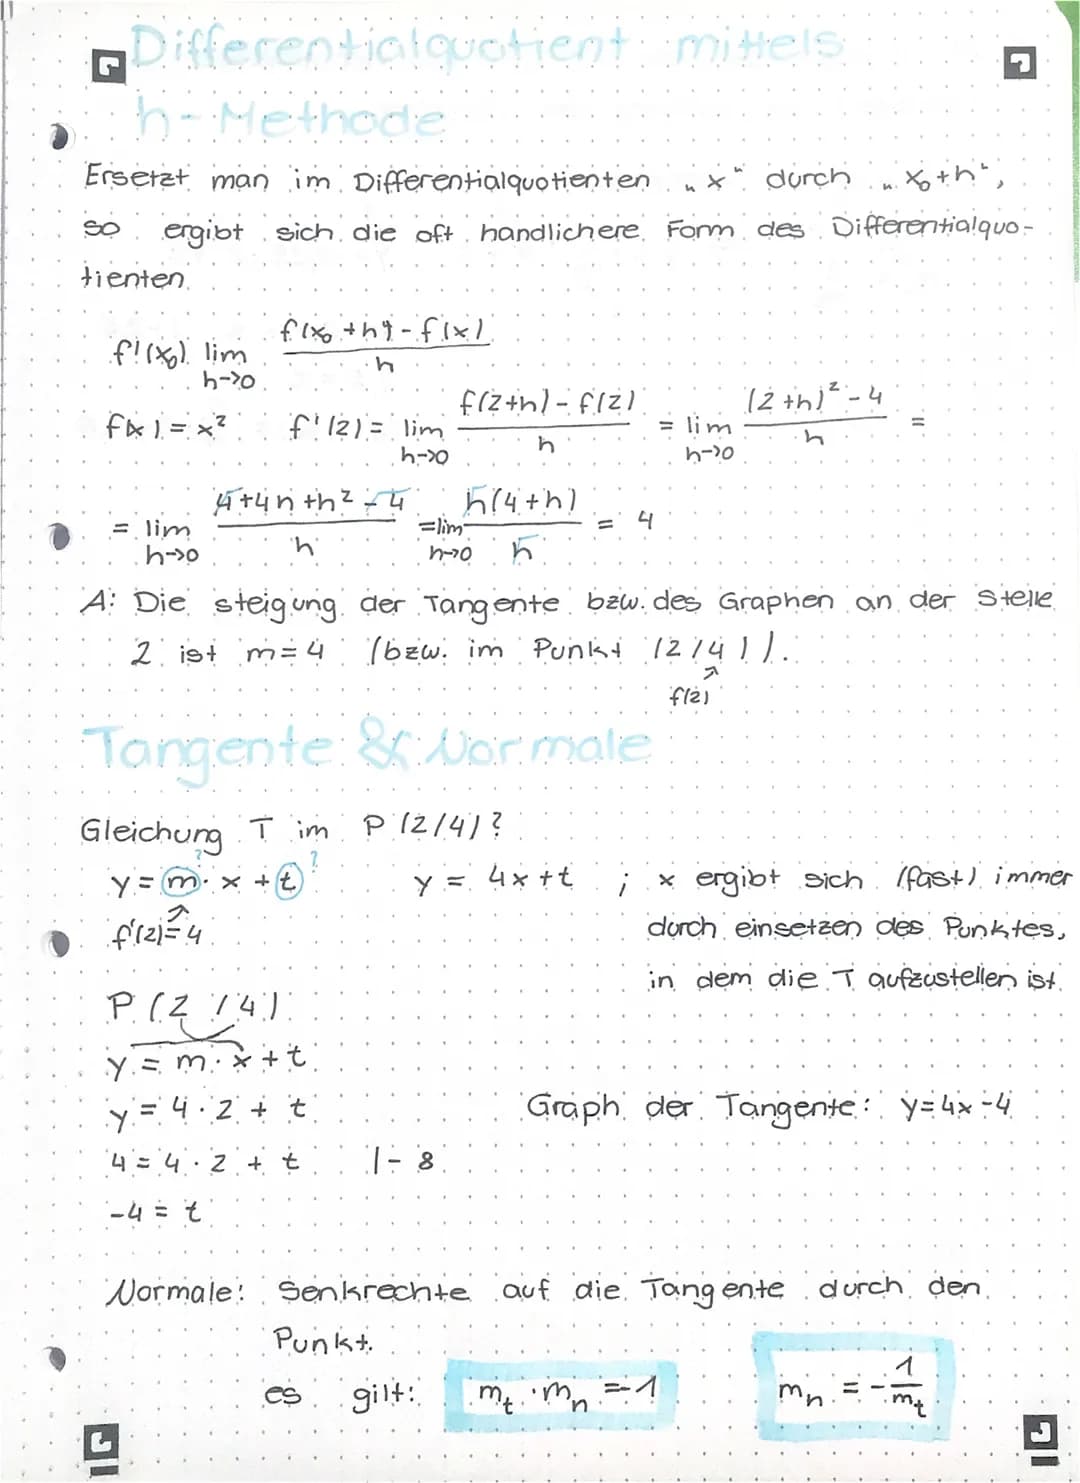 Differentialquotient mittels
h-Methode
Ersetzt man im Differentialquotienten „x" durch „x₀+h",
so ergibt sich die oft handlichere Form des Differentialquo-
tienten
f'(x₀) lim h->0 (f(x₀+h) - f(x))/h
f(x) = x² f'(2) = lim h->0 (f(2+h) - f(2))/h = lim h->0 ((2+h)² - 4)/h =
= lim h->0 (4+4h+h²-4)/h = lim h->0 h(4+h)/h = 4
A: Die steigung der Tangente bzw. des Graphen an der Stelle
2 ist m=4 (bzw. im Punkt (2/4)).
f(2)
Tangente & Normale
Gleichung T im P(2/4)?
y = m · x + t y = 4x+t ; x ergibt sich (fast) immer
? ?
f'(2)=4 durch einsetzen des Punktes,
in dem die T aufzustellen ist.
P(2/4)
y = m · x + t
y = 4 · 2 + t Graph der Tangente: y=4x-4
4 = 4 · 2 + t |- 8
-4 = t
Normale: Senkrechte auf die Tangente durch den
Punkt.
es gilt: mₜ · mₙ = -1 mₙ = - 1/mₜ